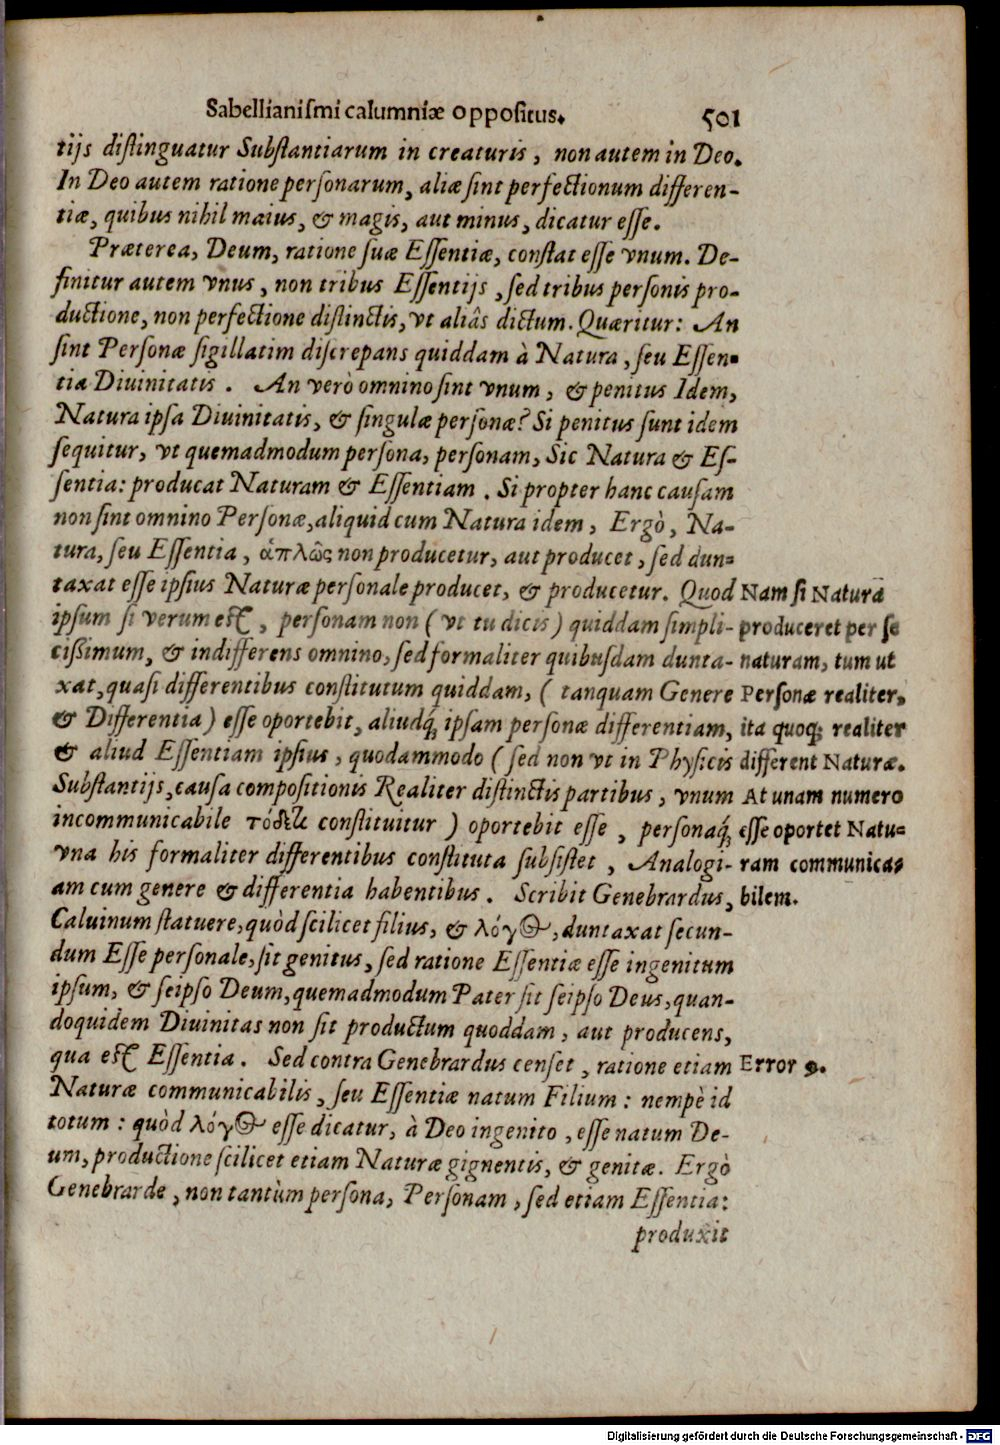 Sabellianiſmi calumniæ oppoſitus. 501
tijs diſtinguatur Subſtantiarum in creaturis, non autem in Deo.
In Deo autem ratione perſonarum, aliæ ſint perfectionum differen-
tiæ, quibus nihil maius, & magis, aut minus, dicatur eſſe.
Præterea, Deum, ratione ſuæ Eſſentiæ, conſtat eſſe vnum. De-
finitur autem vnus, non tribus Eſſentijs, ſed tribus perſonis pro-
ductione, non perfectione diſtinctis, vt aliâs dictum. Quæritur: An
ſint Perſonæ ſigillatim diſcrepans quiddam à Natura, ſeu Eſſen-
tia Diuinitatis. An verò omnino ſint vnum, & penitus Idem,
Natura ipſa Diuinitatis, & ſingulæ perſonæ? Si penitus ſunt idem
ſequitur, vt quemadmodum perſona, perſonam, Sic Natura & Eſ-
ſentia: producat Naturam & Eſſentiam. Si propter hanc cauſam
non ſint omnino Perſonæ, aliquid cum Natura idem, Ergò, Na-
tura, ſeu Eſſentia, ἁπλῶς non producetur, aut producet, ſed dun-
taxat eſſe ipſius Naturæ perſonale producet, & producetur. Quod
ipſum ſi verum eſt, perſonam non (vt tu dicis) quiddam ſimpli-
ciſſimum, & indifferens omnino, ſed formaliter quibuſdam dunta-
xat, quaſi differentibus conſtitutum quiddam, (tanquam Genere
& Differentia) eſſe oportebit, aliudq́; ipſam perſonæ differentiam,
& aliud Eſſentiam ipſius, quodammodo (ſed non vt in Phyſicis
Subſtantijs, cauſa compoſitionis Realiter diſtinctis partibus, vnum
incommunicabile τόδε τι conſtituitur) oportebit eſſe, perſonaq́;
vna his formaliter differentibus conſtituta ſubſiſtet, Analogi-
am cum genere & differentia habentibus. Scribit Genebrardus,
Caluinum ſtatuere, quòd ſcilicet filius, & λόγος, duntaxat ſecun-
dum Eſſe perſonale, ſit genitus, ſed ratione Eſſentiæ eſſe ingenitum
ipſum, & ſeipſo Deum, quemadmodum Pater ſit ſeipſo Deus, quan-
doquidem Diuinitas non ſit productum quoddam, aut producens,
qua eſt Eſſentia. Sed contra Genebrardus cenſet, ratione etiam
Naturæ communicabilis, ſeu Eſſentiæ natum Filium: nempè id
totum: quòd λόγος eſſe dicatur, à Deo ingenito, eſſe natum De-
um, productione ſcilicet etiam Naturæ gignentis, & genitæ. Ergò
Genebrarde, non tantùm perſona, Perſonam, ſed etiam Eſſentia:
produxit
Nam ſi Natura
produceret per ſe
naturam, tum ut
Perſonæ realiter,
ita quoq; realiter
different Naturæ.
At unam numero
eſſe oportet Natu-
ram communica-
bilem.
Error 9.
Digitalisierung gefördert durch die Deutsche Forschungsgemeinschaft - DFG